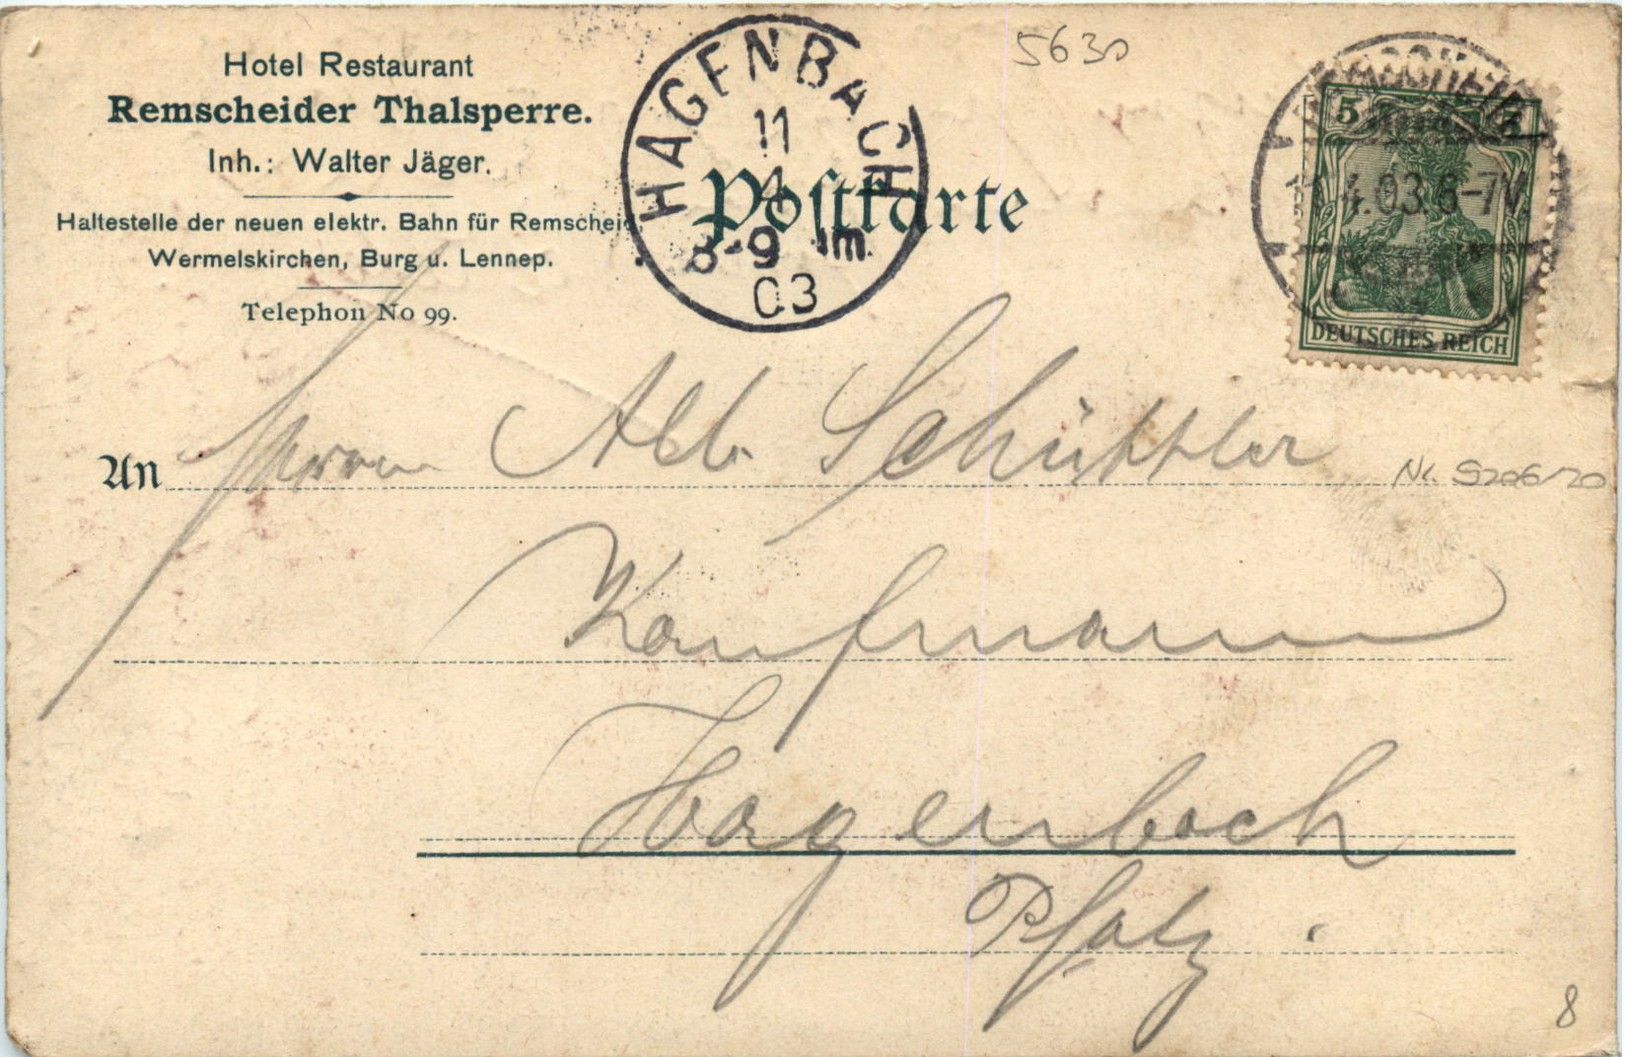 Hotel Restaurant
Remscheider Thalsperre.
Inh.: Walter Jäger.
Haltestelle der neuen elektr. Bahn für Remscheid,
Wermelskirchen, Burg u. Lennep.
Telephon No 99.
HAGENBACH
11
4
8-9 Vm.
03
Postkarte
5630
5 5
4.03.6-7N.
DEUTSCHES REICH
An Herrn Alb. Schüttler
Nr. 9206/20
Kaufmann
Hagenbach
Pfalz.
8